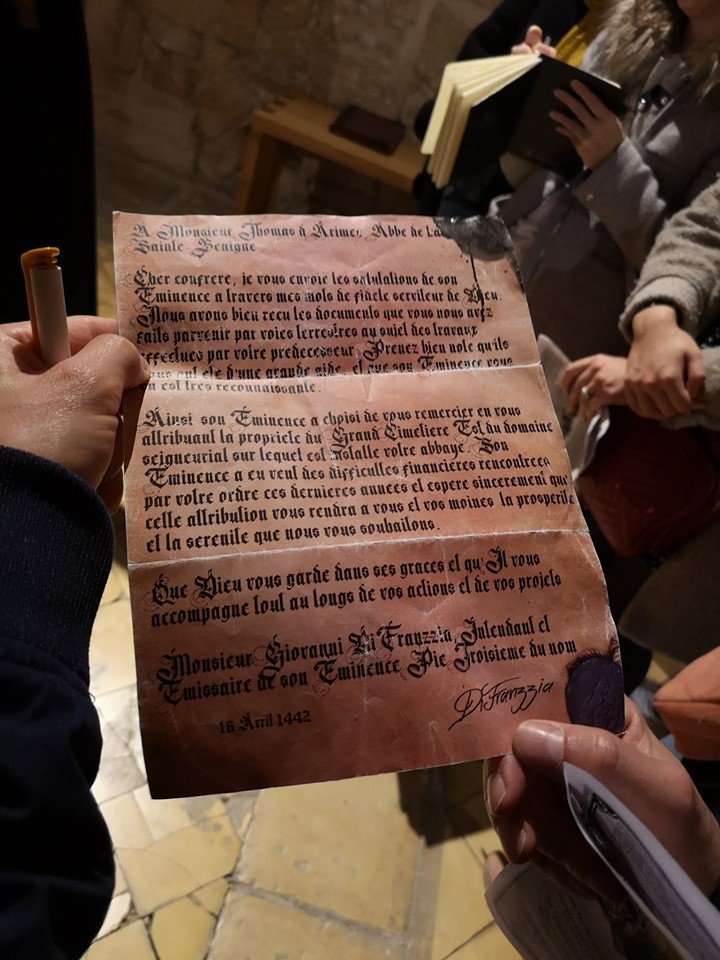 A Monsieur Thomas d Arimez Abbe de
Sainte Benigne
Cher confrere, je vous envoie les salutations de son
Eminence a travers mes mots de fidele serviteur de Dieu.
Nous avons bien recu les documents que vous nous avez
faits parvenir par voies terrestres au sujet des travaux
effectues par votre predecesseur Prenez bien note qu'ils
nous ont ete d'une grande aide, et que son Eminence vous
en est tres reconnaissante.
Ainsi son Eminence a choisi de vous remercier en vous
attribuant la propriete du Grand Cimetiere Est du domaine
seigneurial sur lequel est installe votre abbaye. Son
Eminence a eu vent des difficultes financieres rencontrees
par votre ordre ces dernieres annees et espere sincerement que
cette attribution vous rendra a vous et vos moines la prosperite
et la serenite que nous vous souhaitons.
Que Dieu vous garde dans ses graces et qu'Il vous
accompagne tout au longs de vos actions et de vos projets
Monsieur Giovanni Di Franzzia Intendant et
Emissaire de son Eminence Pie Troisieme du nom
16 Avril 1442
Di Franzzia